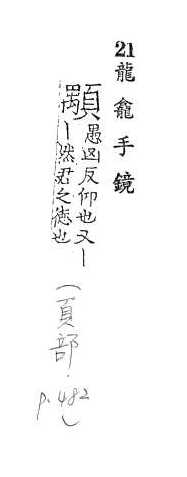 21 龍龕手鏡
愚凶反仰也又丨
丨然君之徳也
(頁部.
p.482)